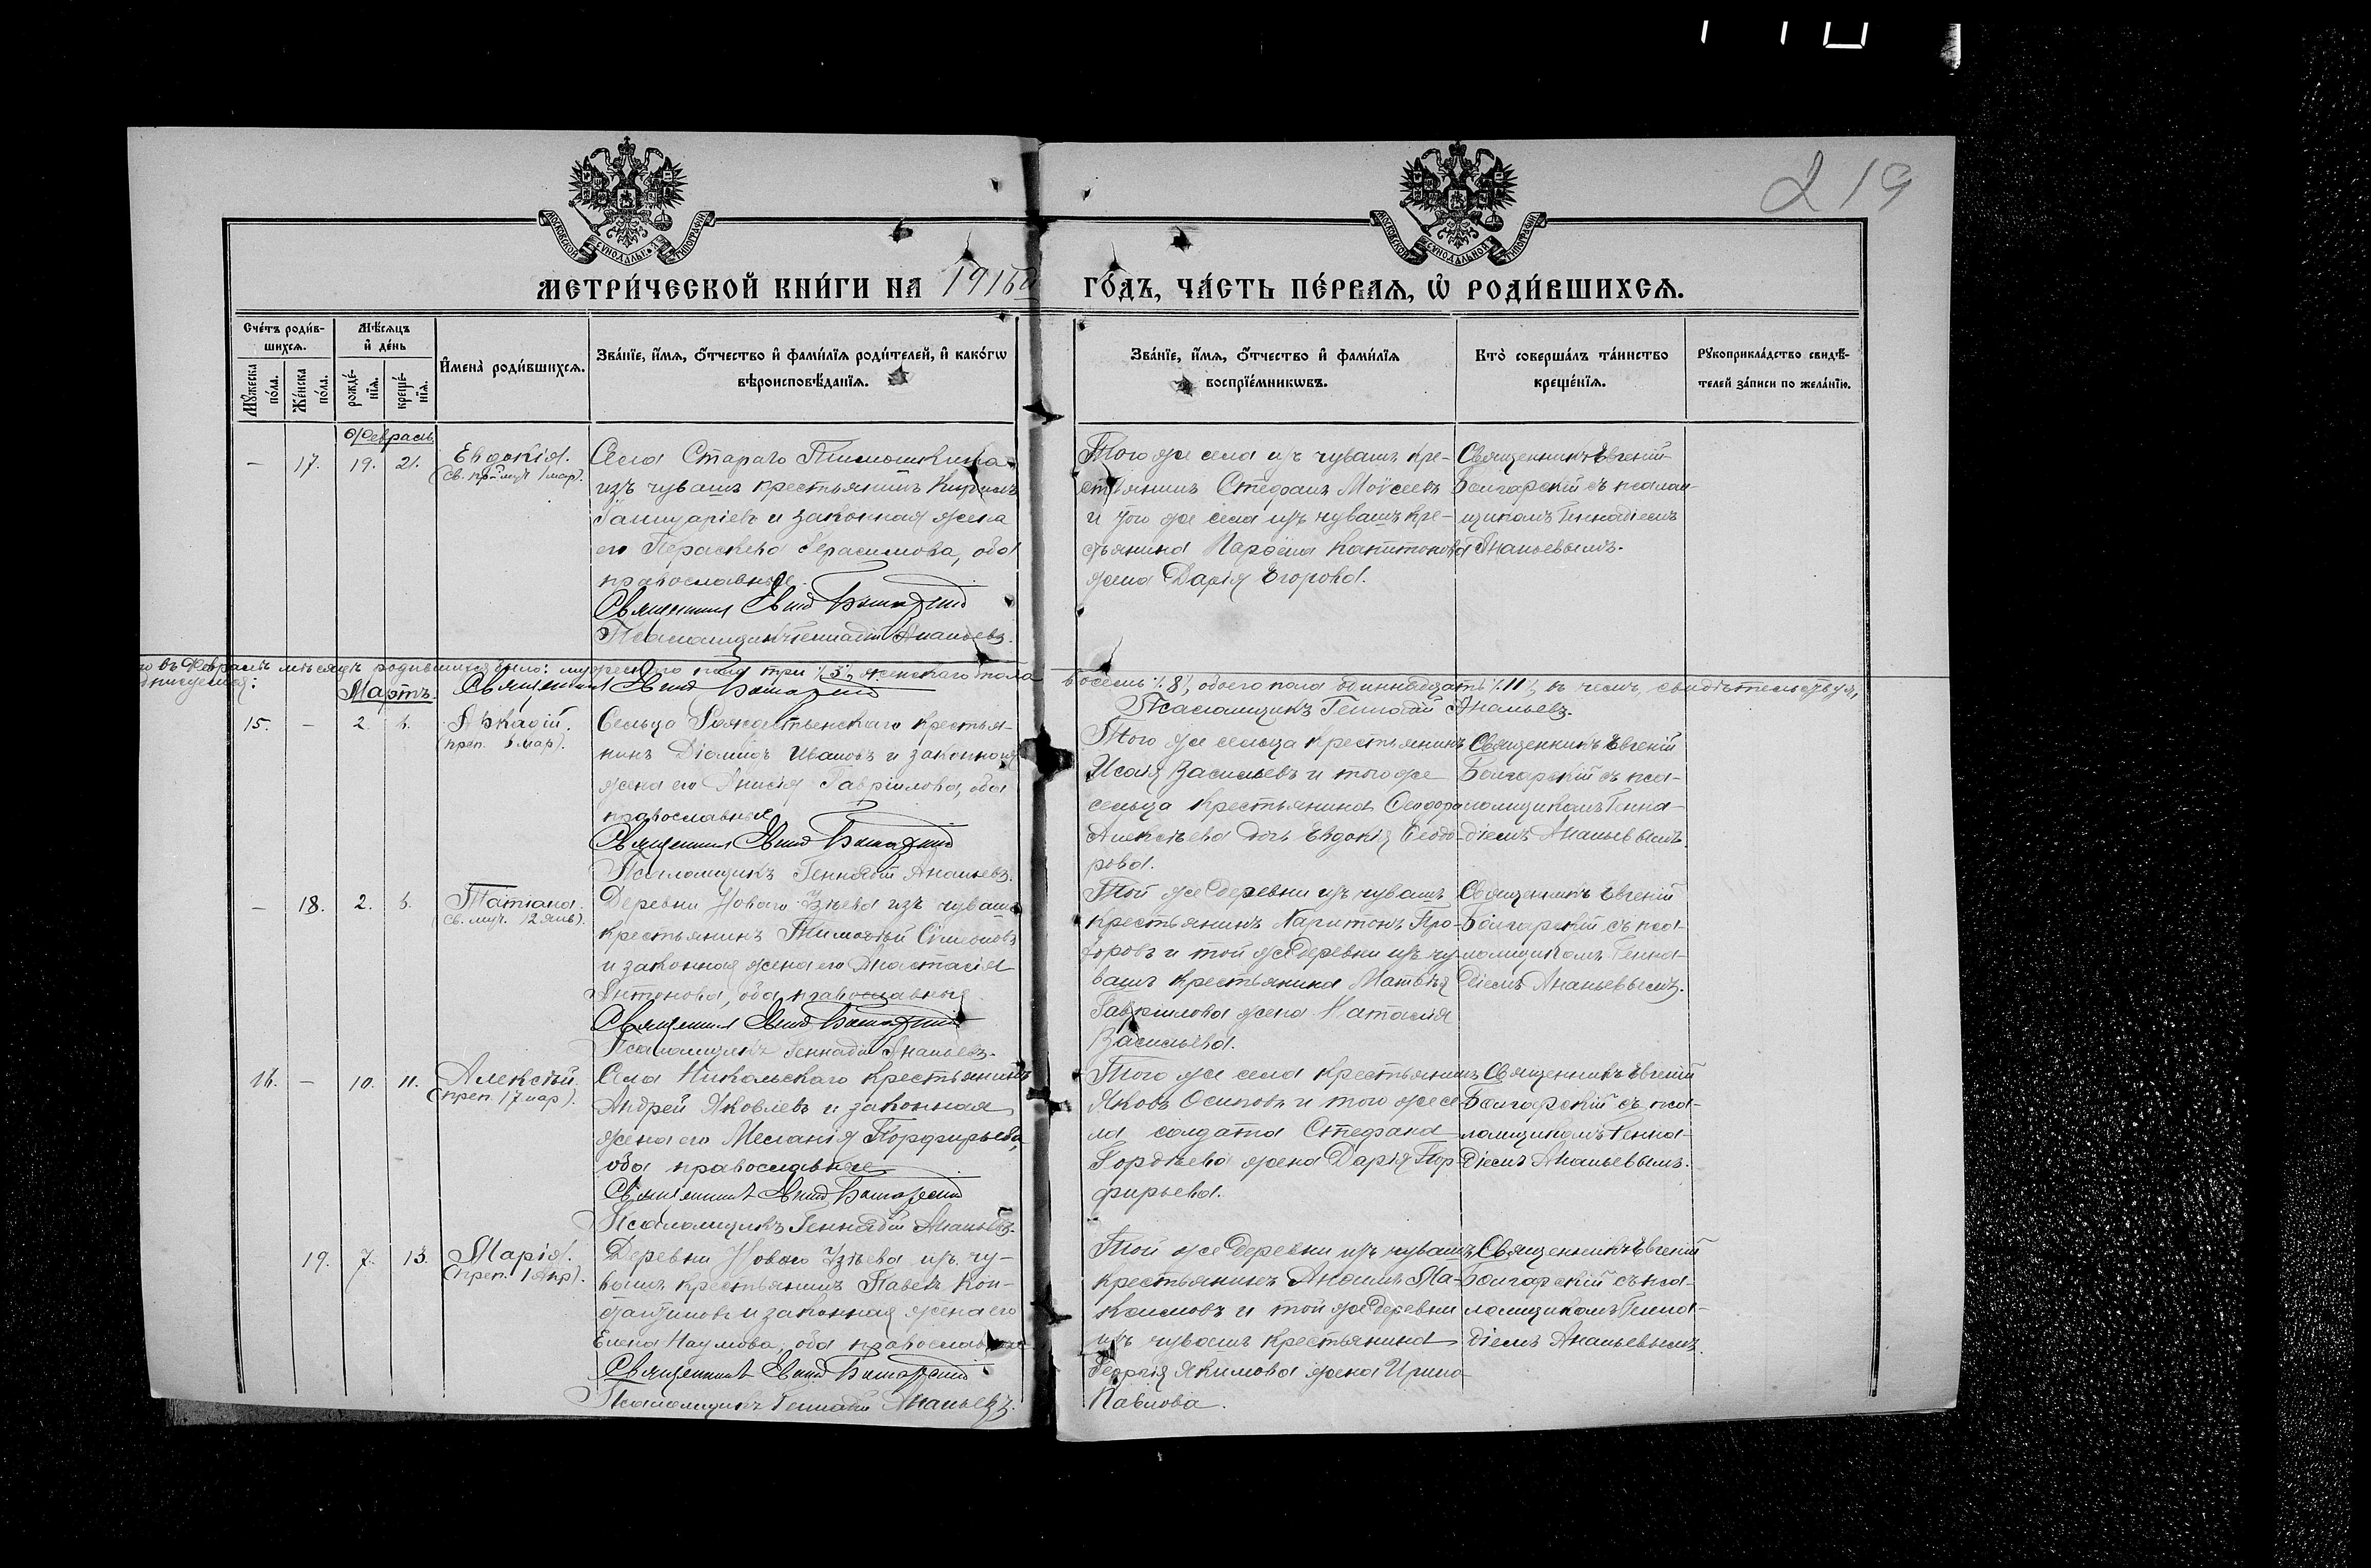 219
МОСКОВСКОЙ СѴНОДАЛЬНОЙ ТИПОГРАФІИ
МОСКОВСКОЙ СѴНОДАЛЬНОЙ ТИПОГРАФІИ
МЕТРИ́ЧЕСКОЙ КНИ́ГИ НА 1915й ГО́ДЪ, ЧА́СТЬ ПЕ́РВАЯ, Ѡ҆ РОДИ́ВШИХСЯ.
Сче́тъ роди́в-
шихсѧ.
Мꙋ́жеска по́ла.
Же́нска по́ла.
Мѣ́сѧцъ
и҆ де́нь
рожде́-
нїѧ.
креще́-
нїѧ.
И҆мена̀ роди́вшихсѧ.
Зва́нїе, и҆́мѧ, ѻ҆́тчество и҆ фами́лїѧ роди́телей, и҆ како́гѡ
вѣроисповѣ́данїѧ.
Зва́нїе, и҆́мѧ, ѻ҆́тчество и҆ фами́лїѧ
воспрїе́мникѡвъ.
Кто̀ соверша́лъ та́инство
креще́нїѧ.
Рꙋкоприкла́дство свидѣ́-
телей за́писи по жела́нїю.
Февраль
— 17. 19. 21.
Евдокія.
(св. пр-муч 1 мар).
Села Стараго Тимошкина
изъ чувашъ крестьянинъ Кириллъ
Ианнуаріевъ и законная жена
его Параскева Герасимова, оба
православные.
Священникъ Евгеній Болгарскій
Псаломщикъ Геннадій Ананьевъ.
Того же села изъ чувашъ кре-
стьянинъ Стефанъ Моѵсеевъ
и того же села изъ чувашъ кре-
стьянина Парѳена Капитонова
жена Дарія Егорова.
Священникъ Евгеній
Болгарскій съ псалом-
щикомъ Геннадіемъ
Ананьевымъ.
въ Февралѣ мѣсяцѣ родившихся было: мужескаго пола три /3/, женскаго пола восемь /8/, обоего пола одиннадцать /11/, въ чемъ свидѣтельствуя,
Священникъ Евгеній Болгарскій
Псаломщикъ Геннадій Ананьевъ.
Мартъ.
15. — 2. 6.
Аркадій.
(преп. 6 мар).
Сельца Рождественскаго крестья-
нинъ Діомидъ Ивановъ и законная
жена его Анисія Гавріилова, оба
православные
Священникъ Евгеній Болгарскій
Псаломщикъ Геннадій Ананьевъ.
Того же сельца крестьянинъ
Исаія Васильевъ и того же
сельца крестьянина Ѳеодора
Алексѣева дочь Евдокія Ѳеодо-
рова.
Священникъ Евгеній
Болгарскій съ пса-
ломщикомъ Генна-
діемъ Ананьевымъ.
— 18. 2. 6.
Татіана.
(св. муч. 12 янв).
Деревни Новаго Узѣева изъ чувашъ
крестьянинъ Тимоѳей Сімеоновъ
и законная жена его Анастасія
Антонова, оба православные.
Священникъ Евгеній Болгарскій
Псаломщикъ Геннадій Ананьевъ.
Той же деревни изъ чувашъ
крестьянинъ Харитонъ Про-
хоровъ и той же деревни изъ чу-
вашъ крестьянина Матвѣя
Гавріилова жена Наталія
Васильева.
Священникъ Евгеній
Болгарскій съ пса-
ломщикомъ Генна-
діемъ Ананьевымъ.
16. — 10. 11.
Алексѣй.
(преп. 17 мар).
Села Никольскаго крестьянинъ
Андрей Яковлевъ и законная
жена его Меланія Порфирьева,
оба православные
Священникъ Евгеній Болгарскій
Псаломщикъ Геннадій Ананьевъ.
Того же села крестьянинъ
Яковъ Осиповъ и того же се-
ла солдата Стефана
Гордѣева жена Дарія Пор-
фирьева.
Священникъ Евгеній
Болгарскій съ пса-
ломщикомъ Генна-
діемъ Ананьевымъ.
19. 7. 13.
Марія.
(преп. 1 Апр).
Деревни Новаго Узѣева изъ чу-
вашъ крестьянинъ Павелъ Кон-
стантиновъ и законная жена его
Елена Наумова, оба православные
Священникъ Евгеній Болгарскій
Псаломщикъ Геннадій Ананьевъ.
Той же деревни изъ чувашъ
крестьянинъ Ма-
ксимовъ и той же деревни
изъ чувашъ крестьянина
Георгія Якимова жена Ирина
Павлова.
Священникъ Евгеній
Болгарскій съ пса-
ломщикомъ Генна-
діемъ Ананьевымъ.